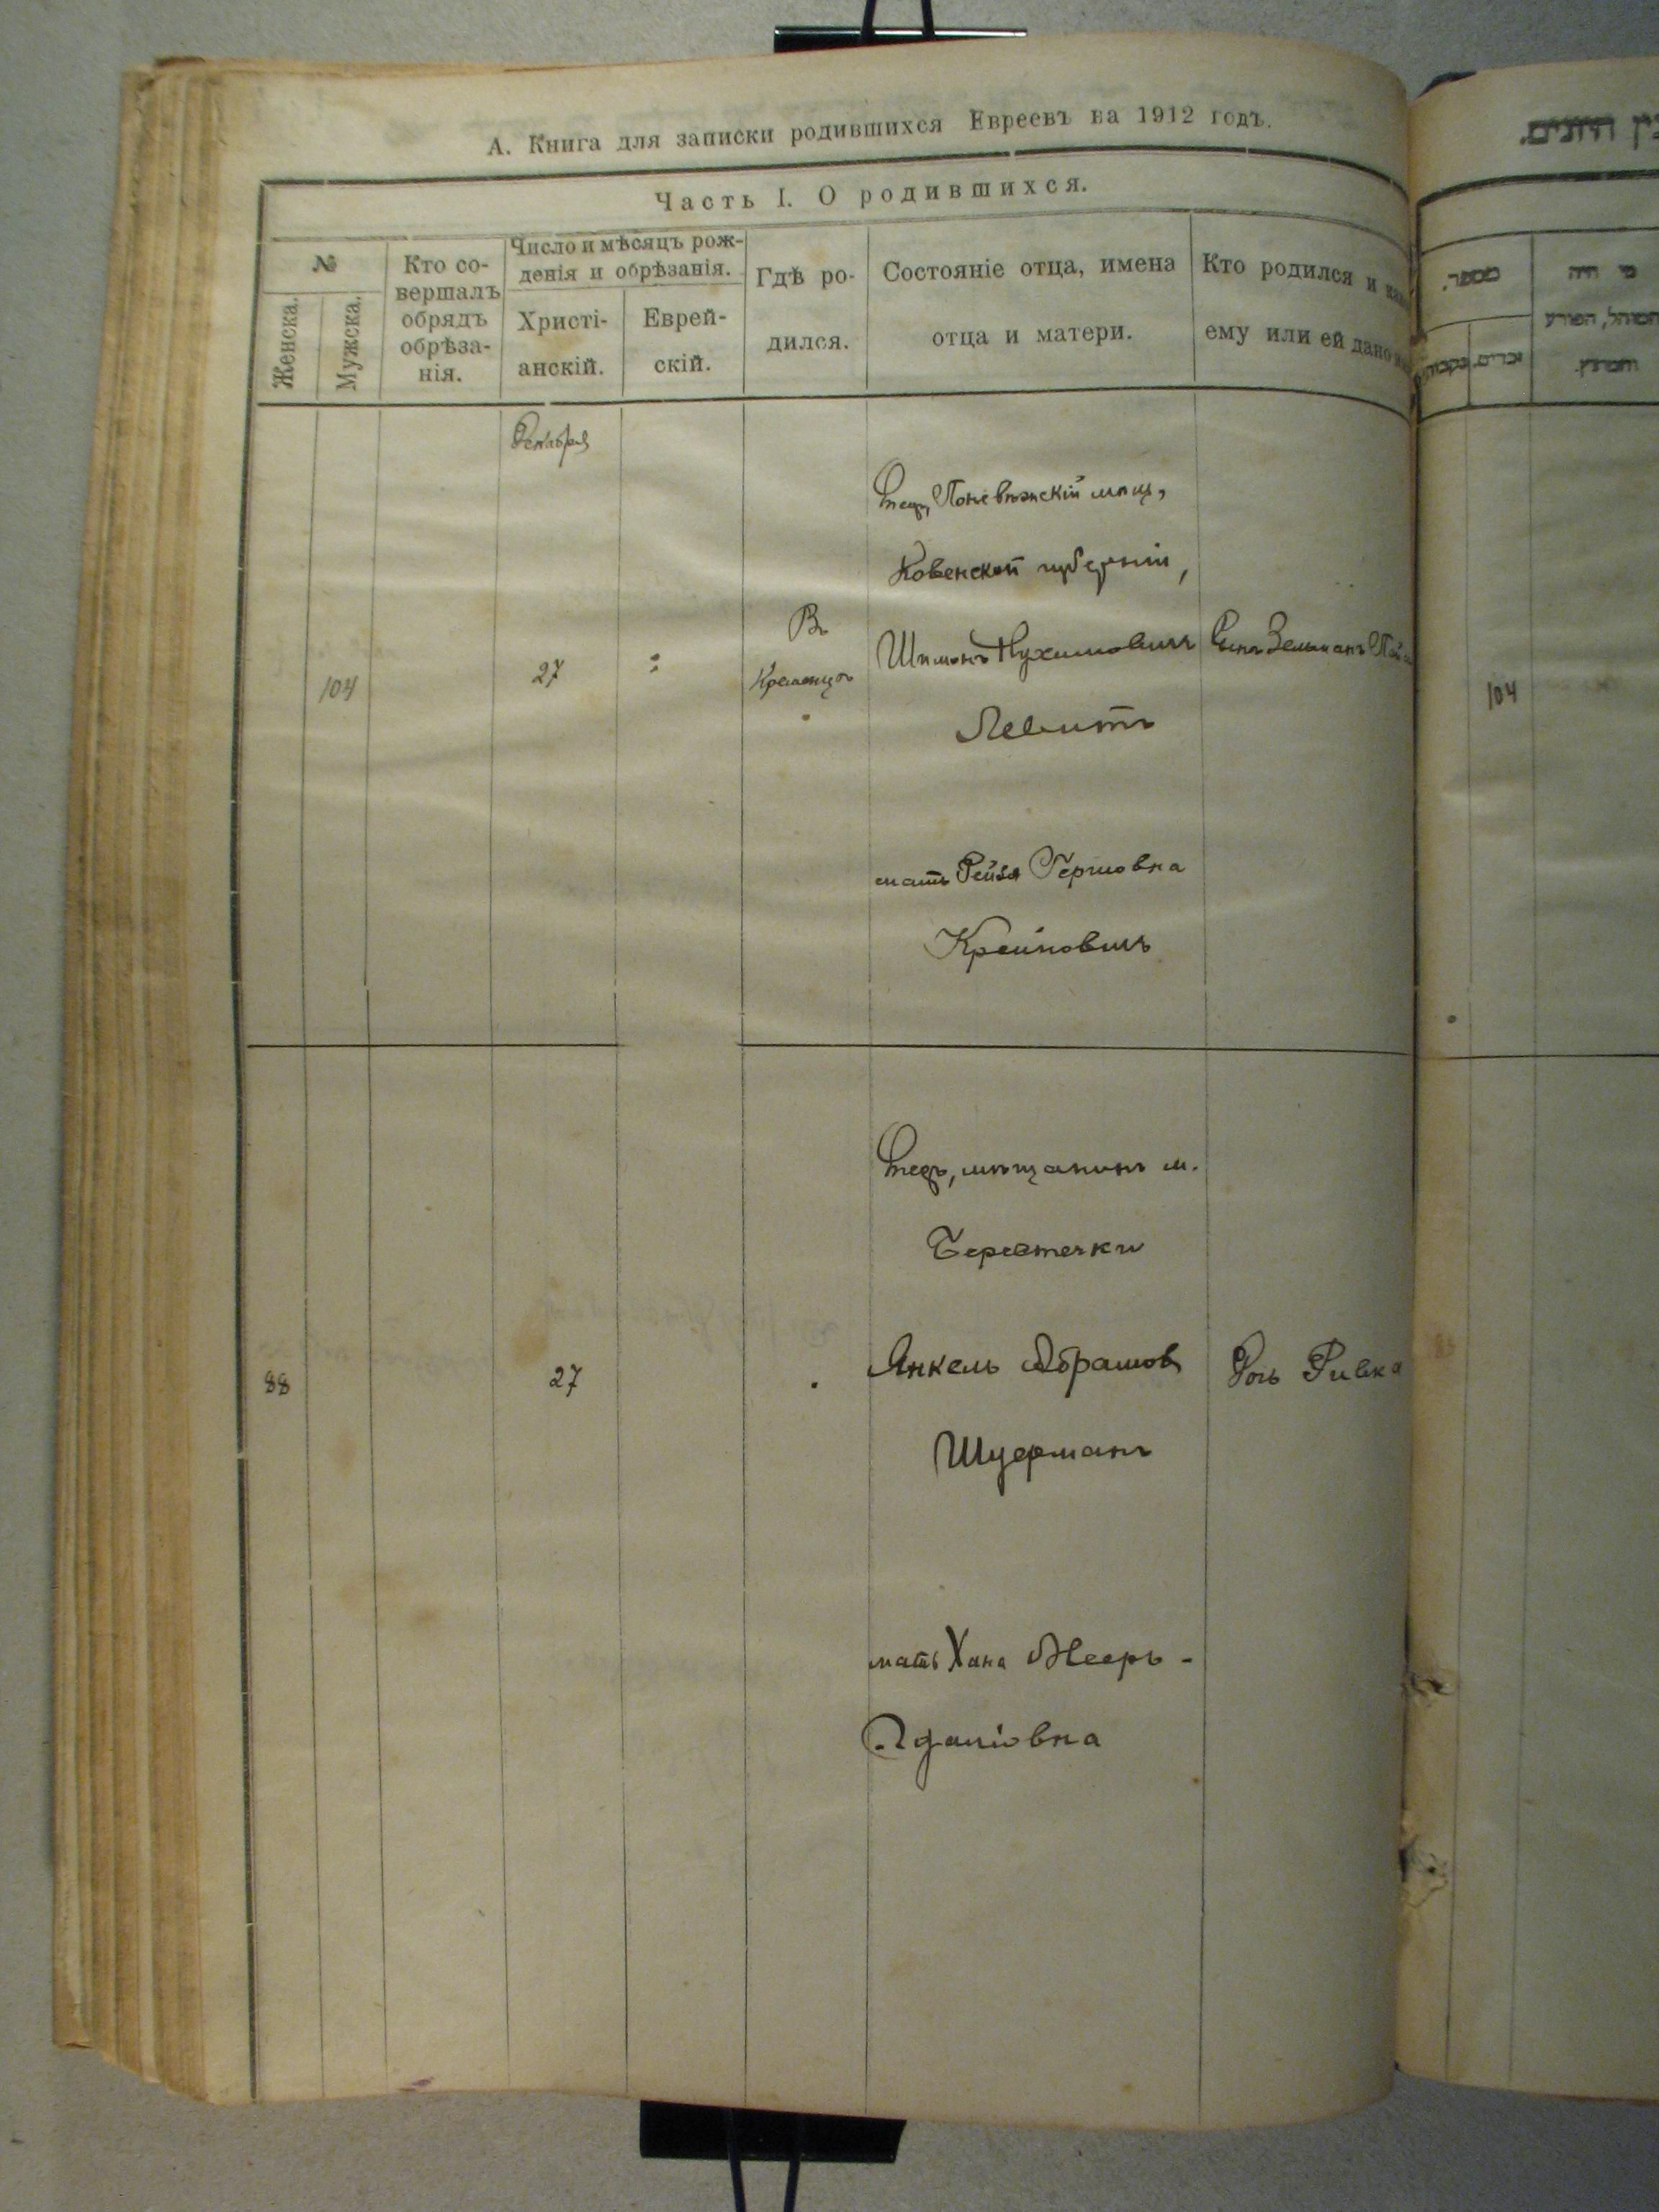 А. Книга для записки родившихся Евреевъ на 1912 годъ.
Часть I. О родившихся.
№
Женска.
Мужска.
Кто со-
вершалъ
обрядъ
обрѣза-
нія.
Число и мѣсяцъ рож-
денія и обрѣзанія.
Христі-
анскій.
Еврей-
скій.
Гдѣ ро-
дился.
Состояніе отца, имена
отца и матери.
Кто родился и
ему или ей дано
Декабря
104
27
Въ
Кременцѣ
Отецъ, Поневѣжскій мѣщ,
Ковенской губерніи,
Шимонъ Нухимовичъ
Левитъ
мать Рейзя Гершовна
Крейновичъ
Сынъ Зельманъ
88
27
Отецъ, мѣщанинъ м.
Берестечки
Янкель Абрамов
Шуерманъ
мать Хана Мееръ-
Дочь Ривка
מספר.
זכרים.
מי היה
המוהל, הפורע
והמוצץ.
104